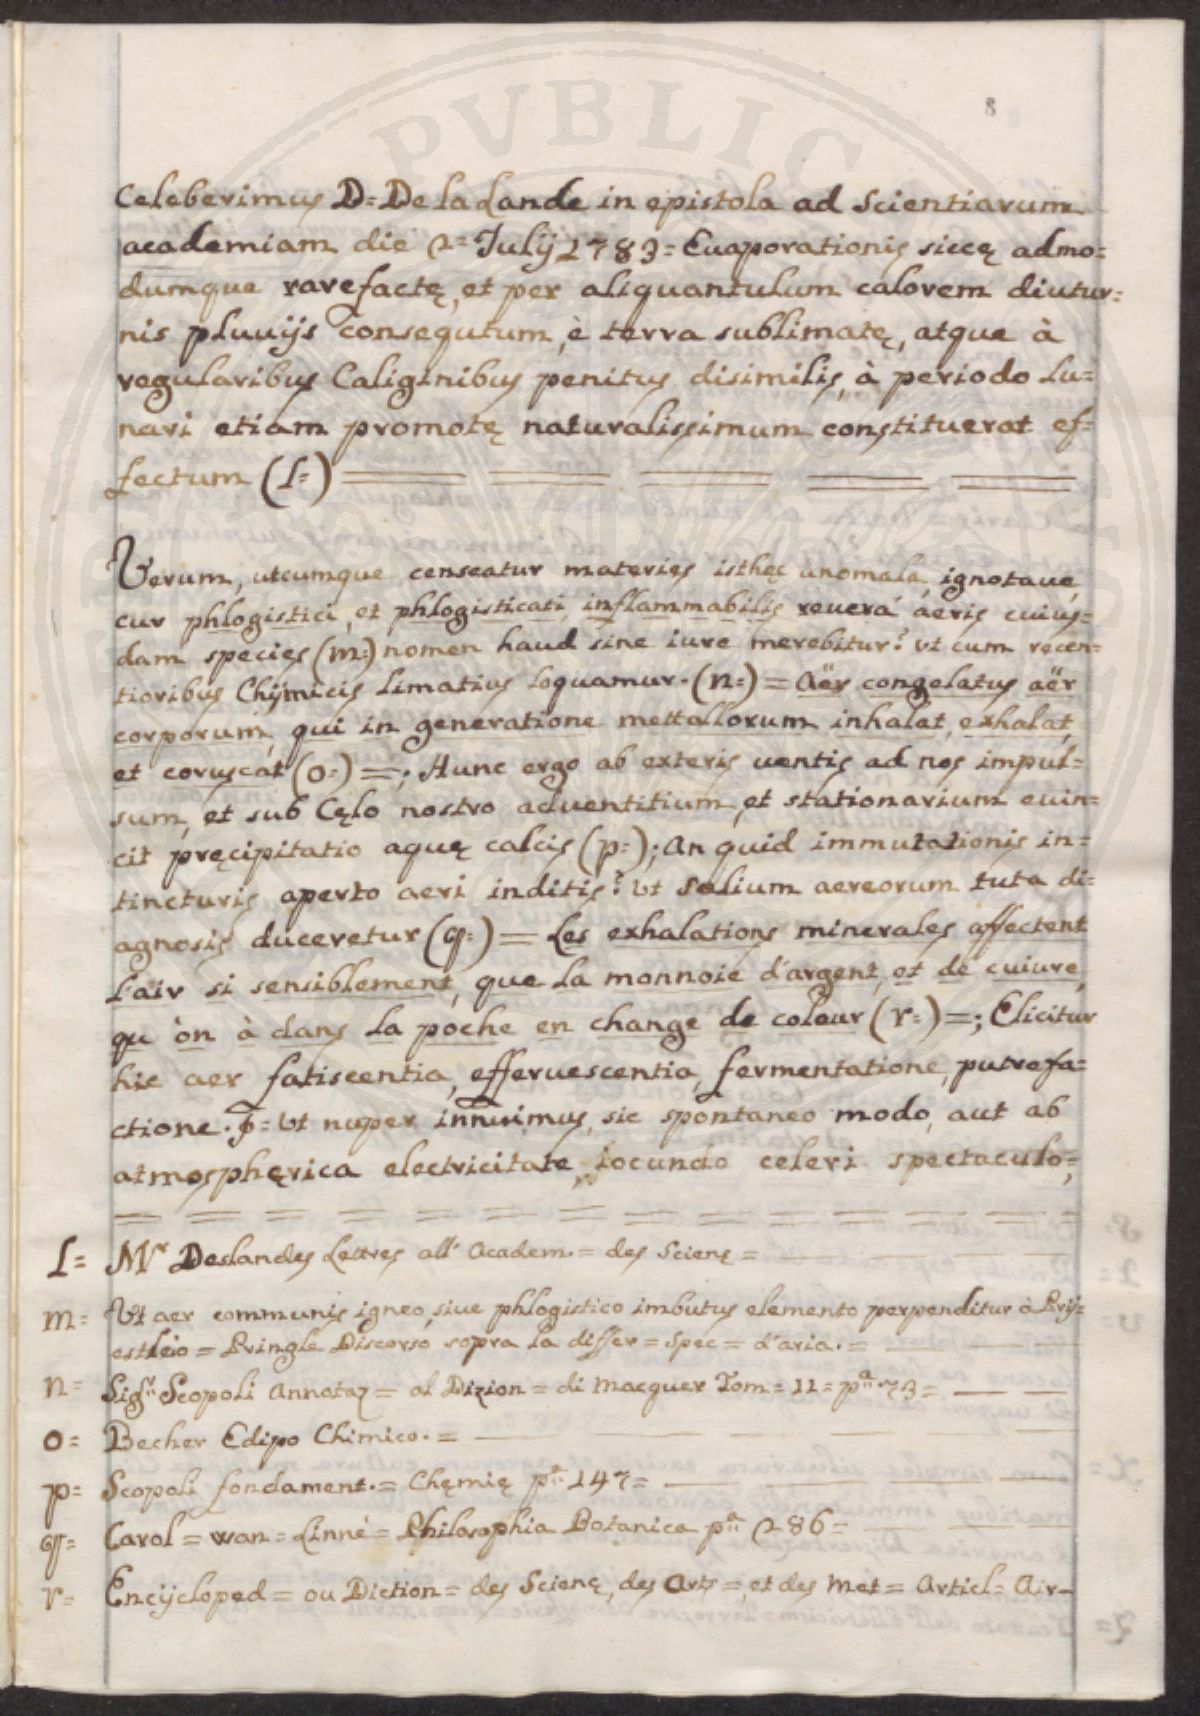 PVBLIC
8
Celeberimus D= De la Lande in epistola ad Scientiarum
academiam die 2= Julij 1783= Euaporationis siccę admo=
dumque rarefactę, et per aliquantulum calorem diutur=
nis pluuijs consequtum, è terra sublimatę, atque à
regularibus Caliginibus penitus disimilis, à periodo Lu=
nari etiam promotę naturalissimum constituerat ef=
fectum (l=)
Verum, utcumque censeatur materies isthęc anomala, ignotaue,
cur phlogistici, et phlogisticati, inflammabilis reuerà aeris cuius=
dam species (m=) nomen haud sine iure merebitur? ut cum recen=
tioribus Chÿmicis Limatius loquamur. (n=) = Aër congelatus aër
corporum, qui in generatione mettallorum inhalat, exhalat,
et coruscat (o=) =; Hunc ergo ab exteris uentis ad nos impul=
sum, et sub Cęlo nostro aduentitium, et stationarium euin=
cit pręcipitatio aquę calcis (p=); an quid immutationis in=
tincturis aperto aeri inditis? ut Salium aereorum tuta di=
agnosis duceretur (q=) = Les exhalations minerales affectent
L'air si sensiblement, que La monnoie d'argent, et de cuiure,
qu 'on à dans La poche en change de colour (r=) =; Elicitur
hic aer fatiscentia, efferuescentia, fermentatione, putrefa=
ctione. ut nuper innuimus, sic spontaneo modo, aut ab
atmosphęrica electricitate, iocundo celeri spectaculo=,
l= Mr Deslandes Lettres all' Academ.= des Scienę =
m= Ut aer communis igneo, siue phlogistico imbutus elemento perpenditur à Prij=
estleio = Pringle Discorso sopra la differ = spec = d'aria. =
n= Sigr Scopoli Annotaz = al Dizion = di Macquer Tom = 11 = pa 73 =
o= Becher Edipo Chimico. =
p= Scopoli fondament.= Chęmię pa 147=
q= Carol = wan = Linnè = Philosophia Botanica pa 286=
r= Encijcloped = ou Diction = des Scienę, des Arts =, et des Met = Articl= Air-